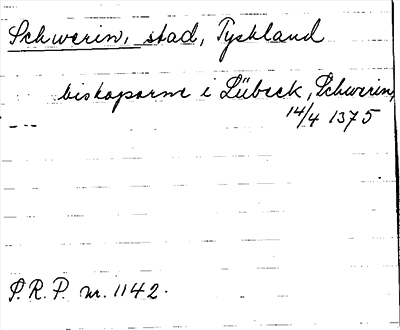 Schwerin, stad, Tyskland
biskoparne i Lübeck, Schwerin,
--- 14/4 1375
P.R.P. nr. 1142.